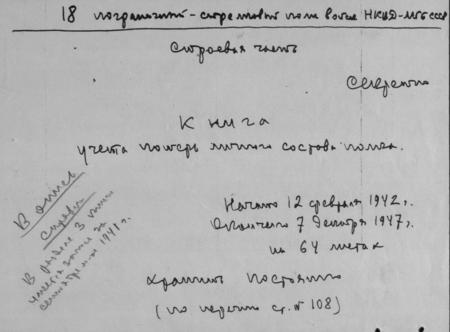 18 погранично-стрелковый полк войск НКВД-МГБ СССР
Строевая часть
Секретно
Книга
учета потерь личного состава полка.
Начато 12 февраля 1942 г.
Окончено 7 декабря 1947 г.
на 64 листах
хранить постоянно
(по перечню ст. № 108)
В опись
справки
В разделе 3 книги
имеются записи за
сентябрь 1941 г.